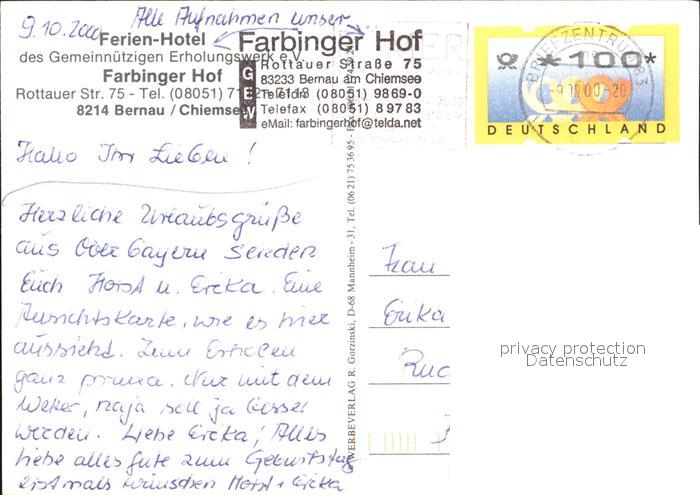 9.10.2000 Alle Aufnahmen unser
Ferien-Hotel
des Gemeinnützigen Erholungswerk e.V.
Farbinger Hof
Rottauer Str. 75 - Tel. (08051)
8214 Bernau / Chiemsee
Farbinger Hof
GEW
Rottauer Straße 75
83233 Bernau am Chiemsee
Telefon (08051) 9869-0
Telefax (08051) 89783
eMail: farbingerhof@telda.net
BRIEFZENTRUM 83
-9.10.00-20
*100*
DEUTSCHLAND
Hallo Ihr Lieben!
Herzliche Urlaubsgrüße
aus Oberbayern senden
Euch Horst u. Erika. Eine
Ansichtskarte, wie es hier
aussieht. Zum Erholen
ganz prima. Nur mit dem
Wetter, naja soll ja besser
werden. Liebe Erika! Alles
liebe alles gute zum Geburtstag
erstmals wünschen Horst + Erika
WERBEVERLAG R. Gorzinski, D-68 Mannheim - 31, Tel. (06 21) 75 36 95
Frau
Erika
privacy protection
Datenschutz